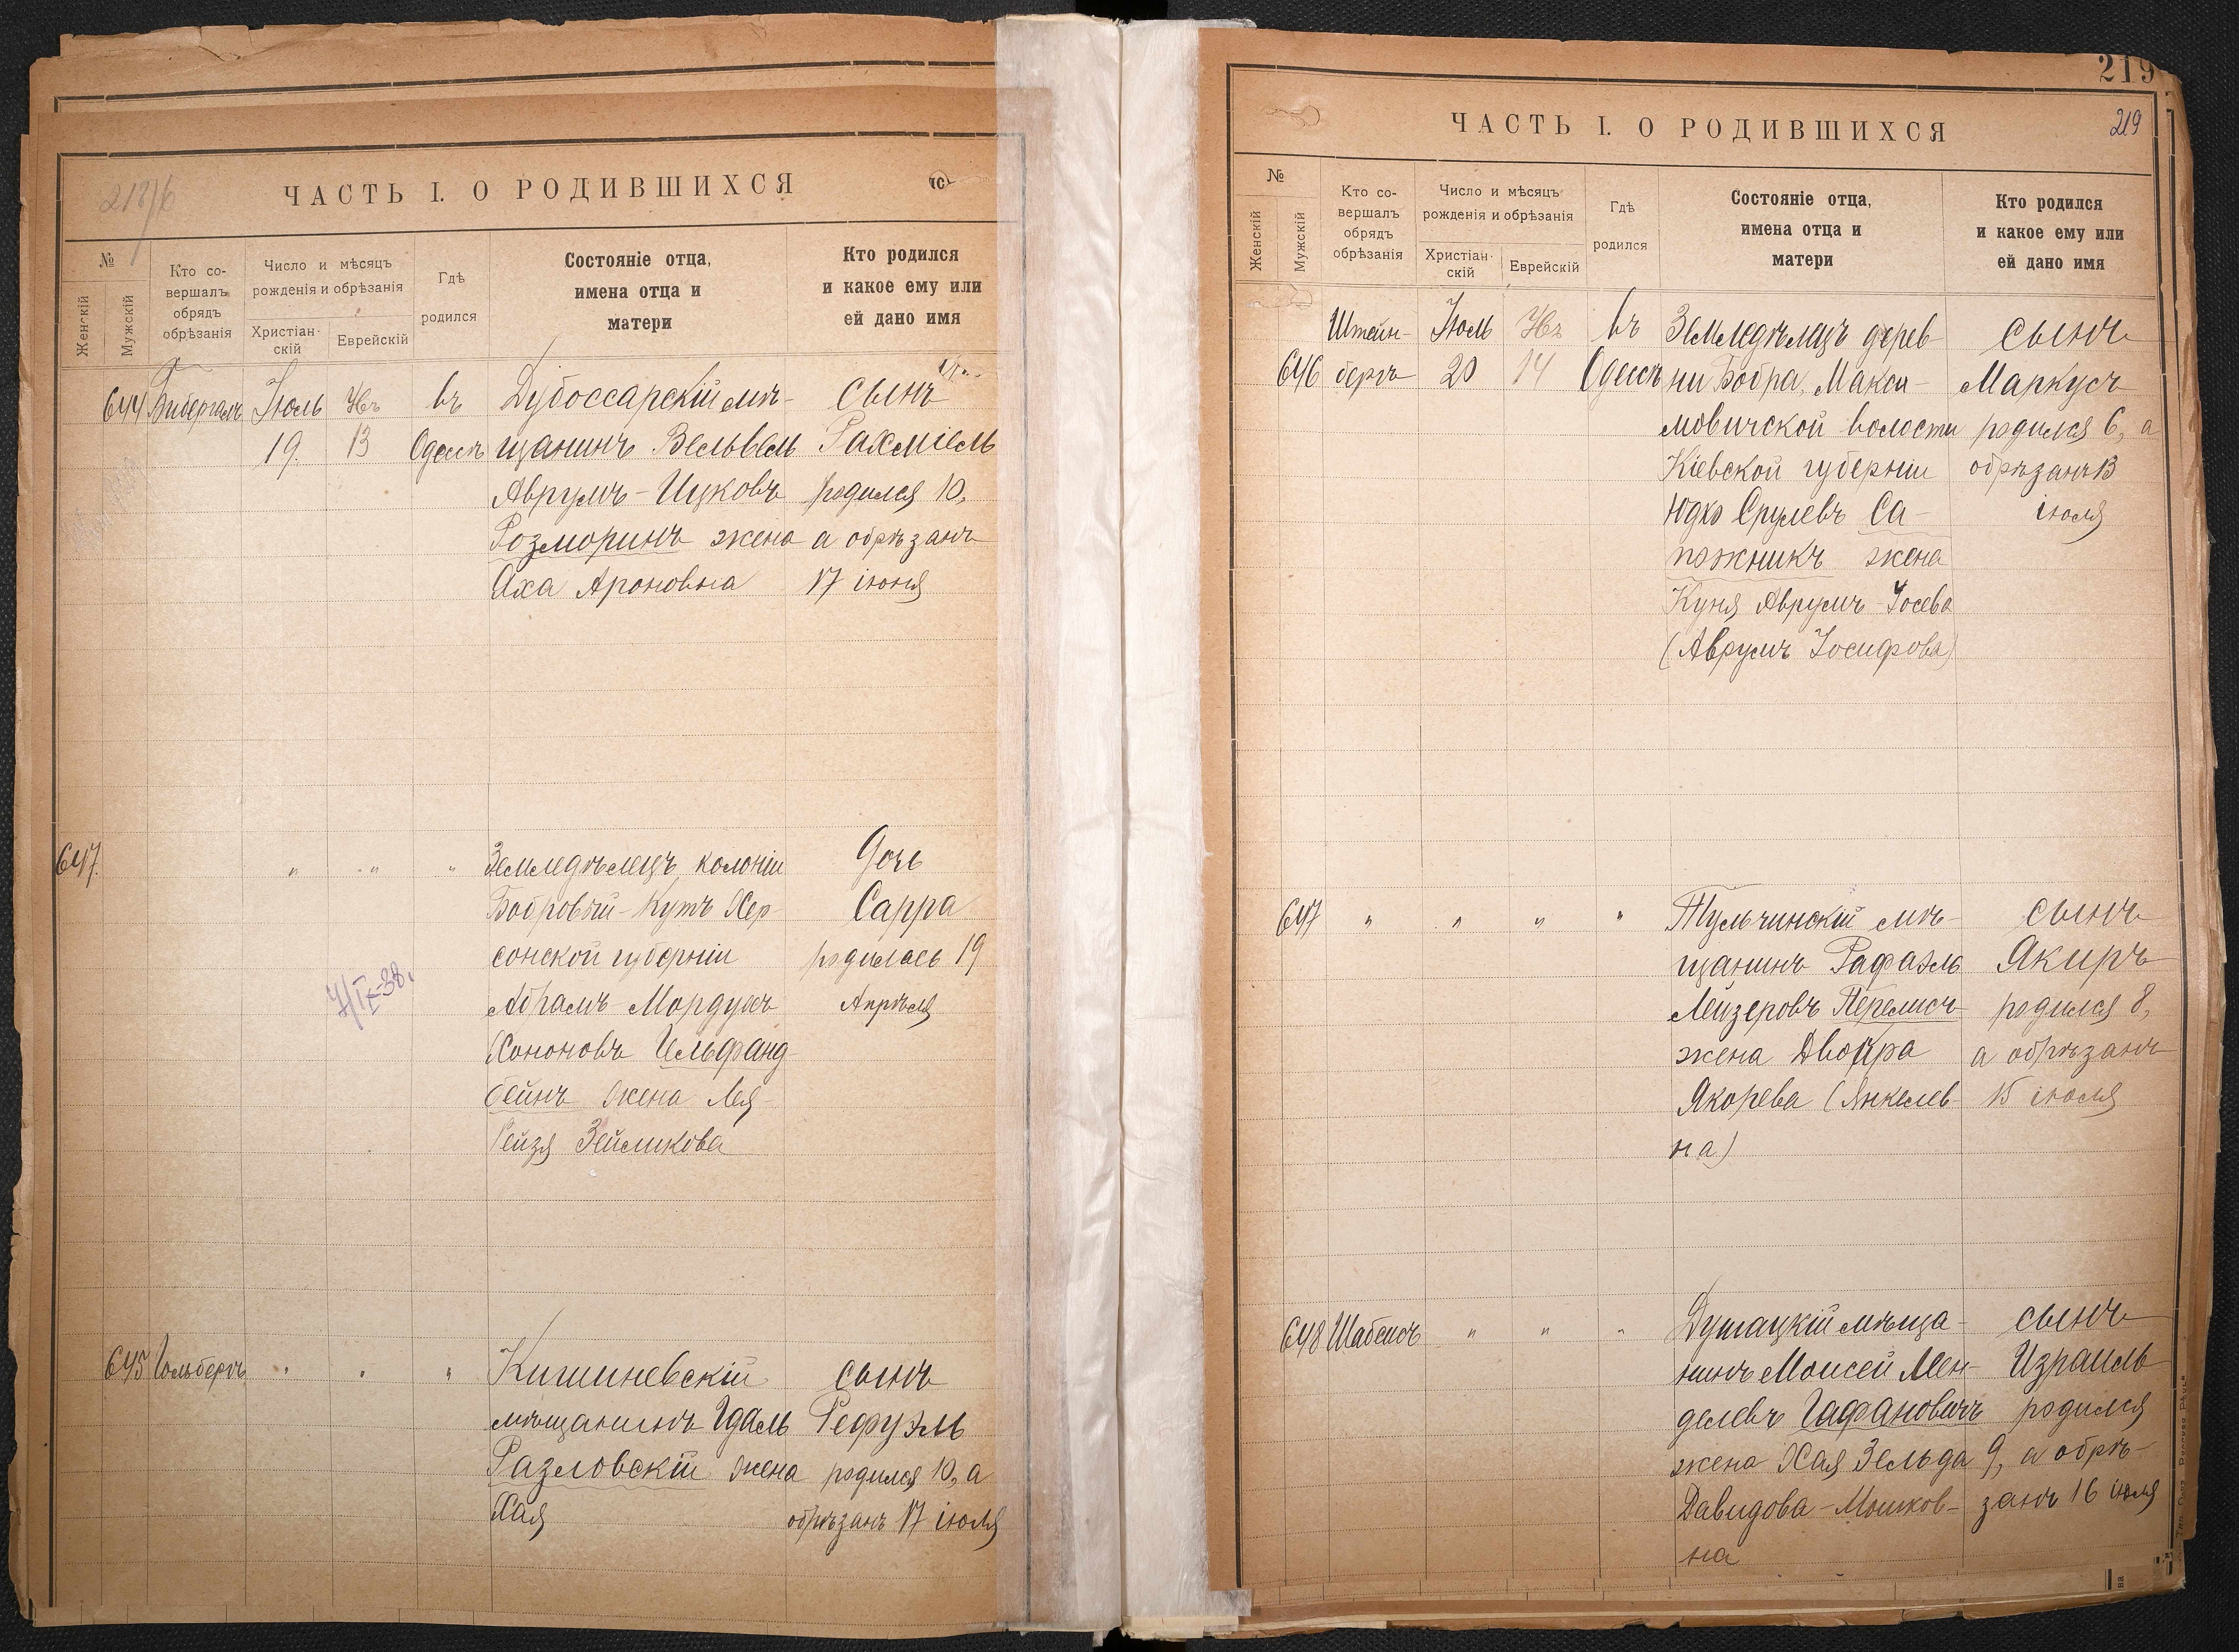 ЧАСТЬ I. О РОДИВШИХСЯ
№
Женскій
Мужскій
Кто со-
вершалъ
обрядъ
обрѣзанія
Число и мѣсяцъ
рожденія и обрѣзанія
Христіан-
скій
Еврейскій
Гдѣ
родился
Состояніе отца,
имена отца и
матери
Кто родился
и какое ему или
ей дано имя
644
Бибергалъ
Іюль
19.
13
въ
Одессѣ
Дубоссарскій мѣ-
щанинъ Вельвель
Аврумъ-Ицковъ
Розморинъ жена
Аха Ароновна
сынъ
Рахміель
родился 10,
а обрѣзанъ
17 іюня
647.
" " "
Земледѣлецъ колоніи
Бобровый-Кутъ Хер-
сонской губерніи
Абрамъ-Мордухъ
Хононовъ Гельфанд-
бейнъ жена Лея-
Рейзя Зейликова
Дочь
Сарра
родилась 19
Апрѣля
7/IX-38.
645
Гольбергъ
" " "
Кишиневскій
мѣщанинъ Гдаль
Разловскій жена
Хая
сынъ
Рефуэль
родился 10, а
обрѣзанъ 17 іюля
219
219
ЧАСТЬ I. О РОДИВШИХСЯ
№
Женскій
Мужскій
Кто со-
вершалъ
обрядъ
обрѣзанія
Число и мѣсяцъ
рожденія и обрѣзанія
Христіан-
скій
Еврейскій
Гдѣ
родился
Состояніе отца,
имена отца и
матери
Кто родился
и какое ему или
ей дано имя
646
Штейн-
бергъ
Іюль
20
14
въ
Одессѣ
Земледѣлецъ дерев-
ни Бобра, Макси-
мовичской волости
Кіевской губерніи
Юдко Срулевъ Са-
пожникъ жена
Куня Аврумъ-Іосева
(Аврумъ Іосифова)
сынъ
Маркусъ
родился 6, а
обрѣзанъ 13
іюля
647
" " " "
Тульчинскій мѣ-
щанинъ Рафаэль
Лейзеровъ Перелисъ
жена Двойра
Якорева (Янкелев-
на)
сынъ
Якиръ
родился 8,
а обрѣзанъ
15 іюля
648
Шабсисъ
" " "
Дусяцкій мѣща-
нинъ Моисей Мен-
делевъ Гафановичъ
жена Хая Зельда
Давидова-Мошков-
на
сынъ
Израиль
родился
9, а обрѣ-
занъ 16 іюля